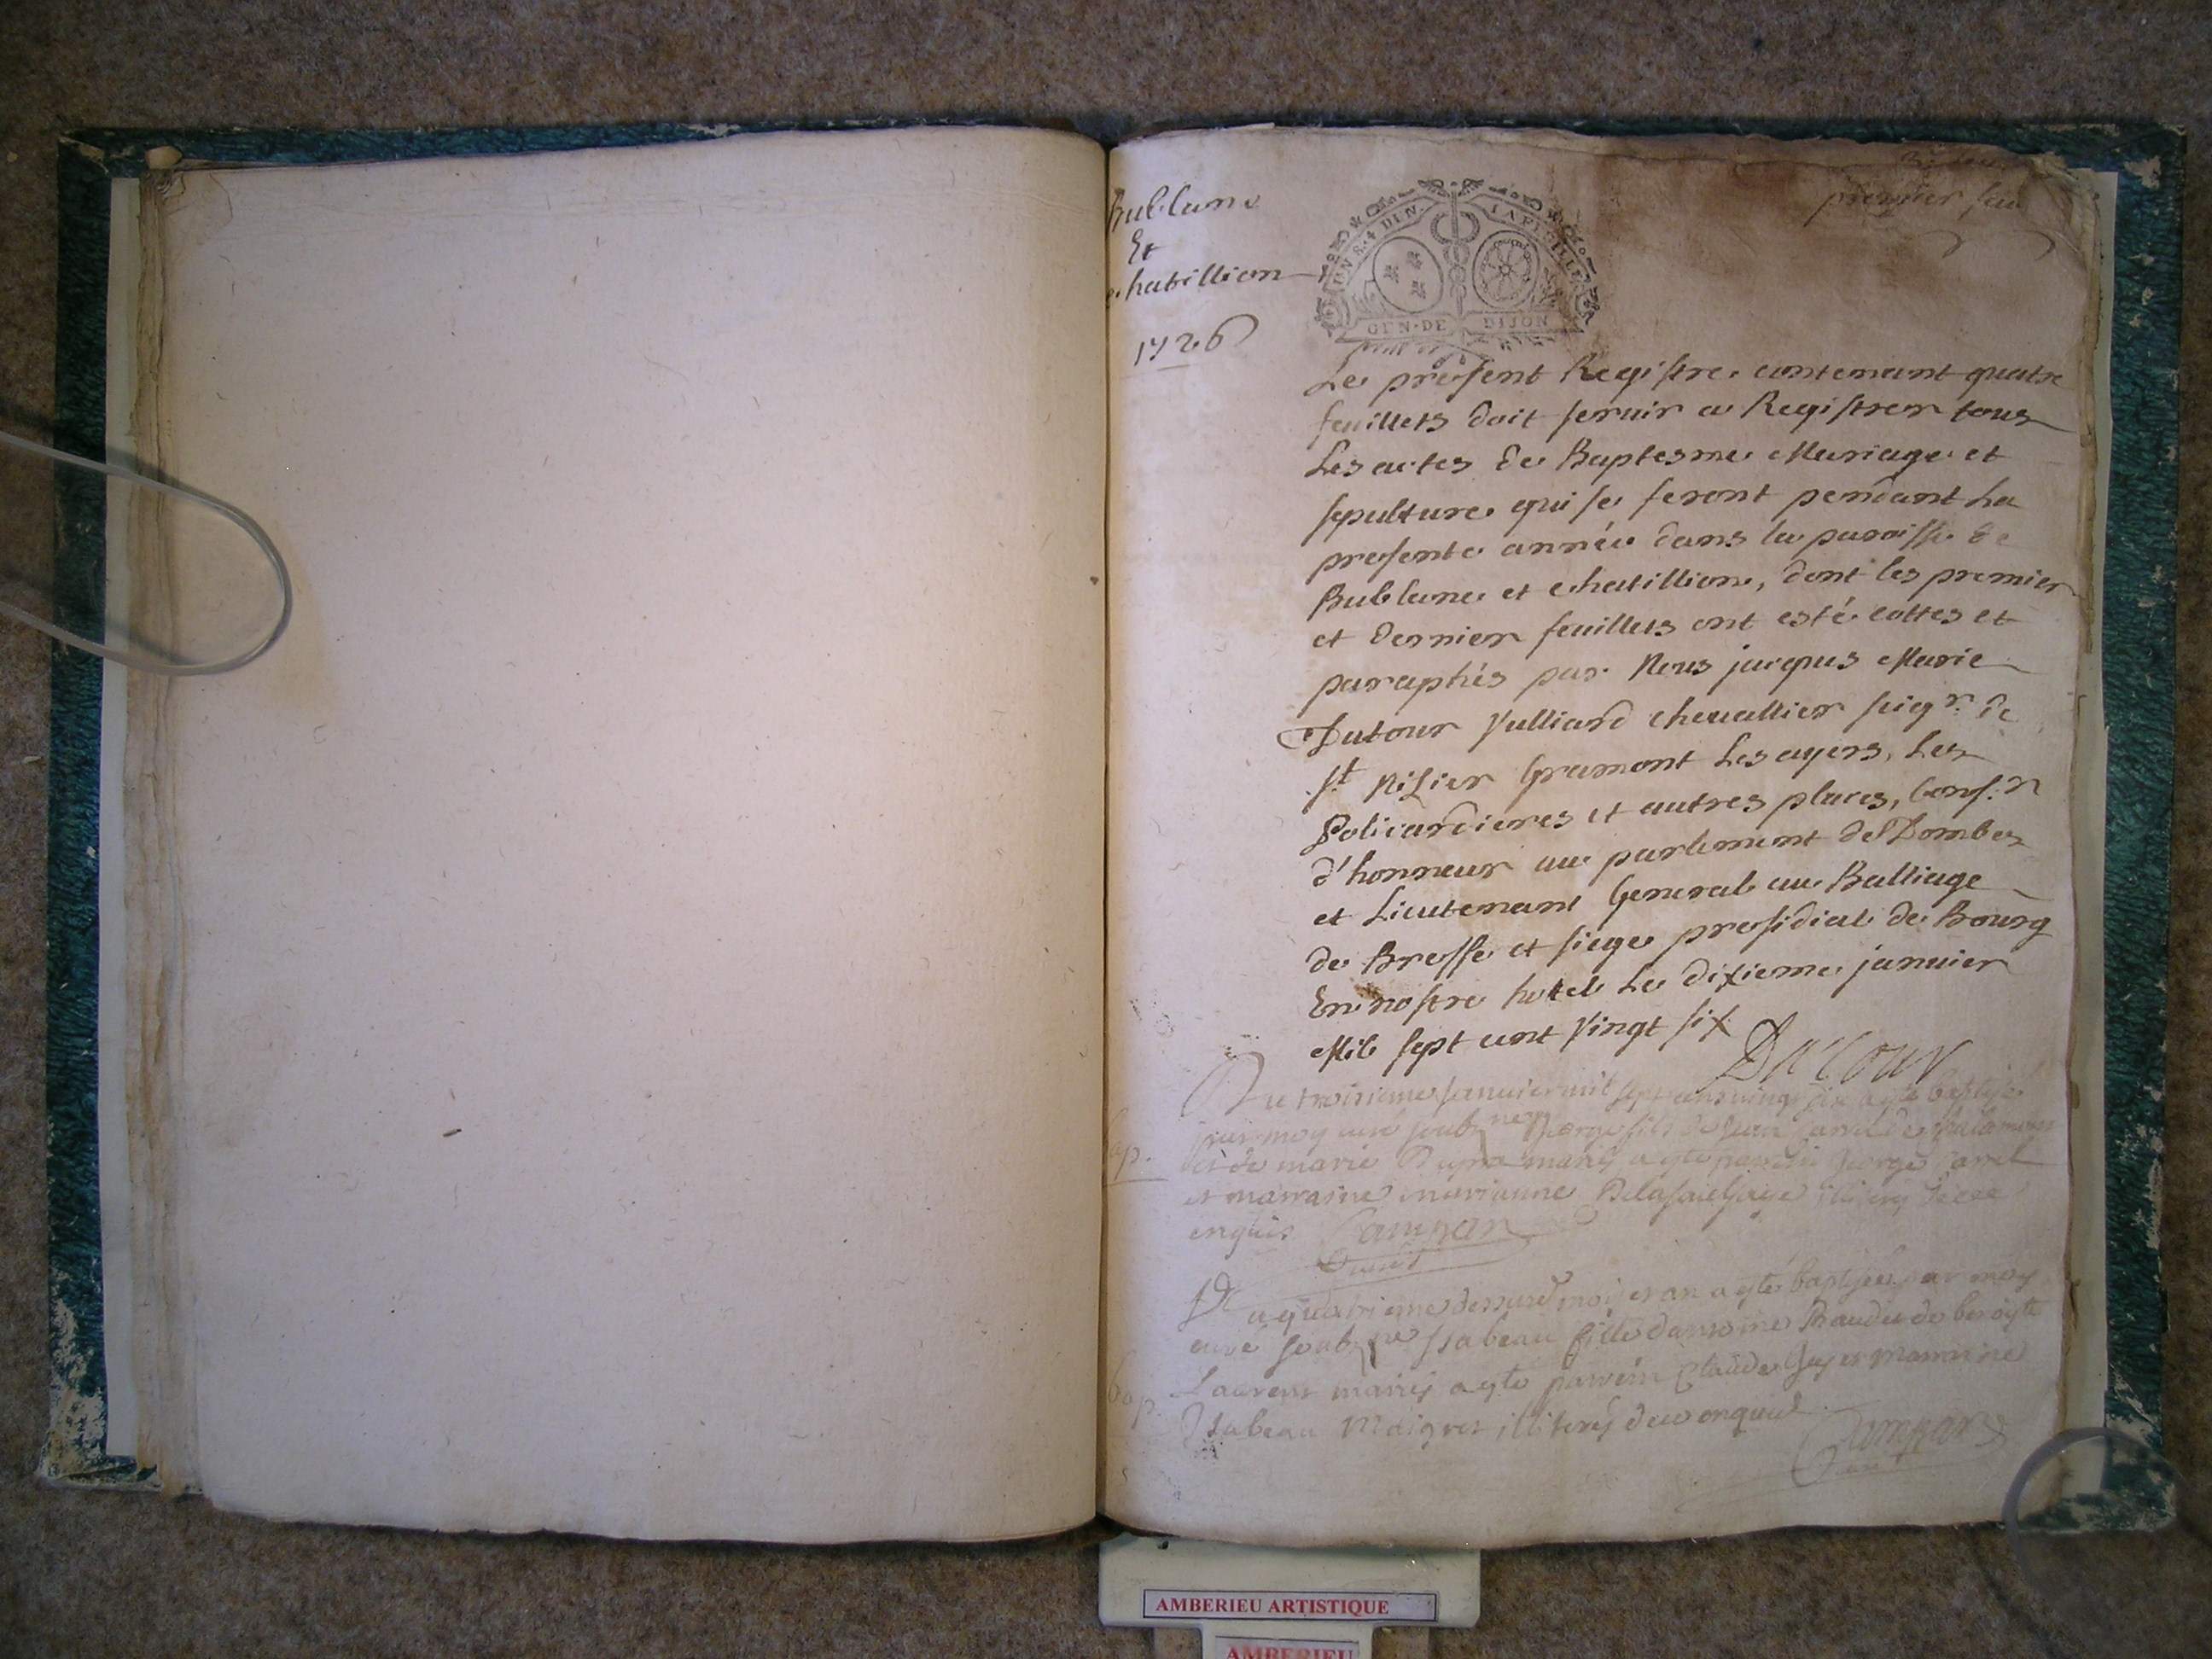 Bublane
Et
chatillion
1726
premier feu
UN S. 4 DEN. LA FEUILLE
GEN. DE DIJON
Le present Registre contenant quatre
feuillets doit servir a Registrer tous
Les actes de Baptesme Mariage et
sepulture qui se feront pendant La
presente année dans la paroisse de
Bublane et chatillion, dont les premier
et dernier feuillets ont esté cottes et
paraphés par Nous jacques Marie
Dutour Vulliard chevallier seigr. de
St Nisier Gramont Les ayers, Les
Policardieres et autres places, Consr.
d'honneur au parlement de Dombes
et Lieutenant General au Balliage
de Bresse et siege presidial de Bourg
En nostre hotel Le dixieme janvier
Mil sept cent Vingt six
Dutour
Du troisieme janvier mil sept cens vingt six a esté baptisé
bap.
par moy curé soubzne George fils de Jean
et de marie mariés a esté parrein George
et marraine marianne illiterés de ce
enquis
Du quatrieme dessusd mois et an a esté baptisée par moy
curé soubzne Isabeau fille dantoine
bap.
Laurent mariés a esté parrein Claude et marraine
Isabeau illiterés de ce enquis
AMBERIEU ARTISTIQUE
AMBERIEU